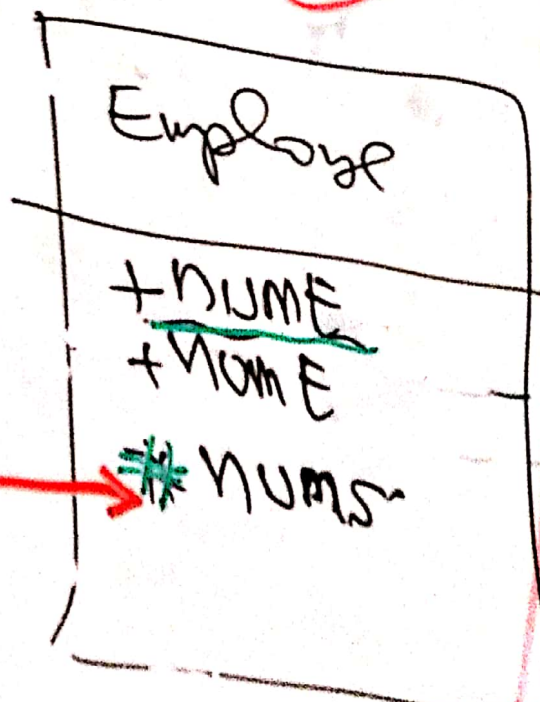 Employe
+numE
+nomE
#numS